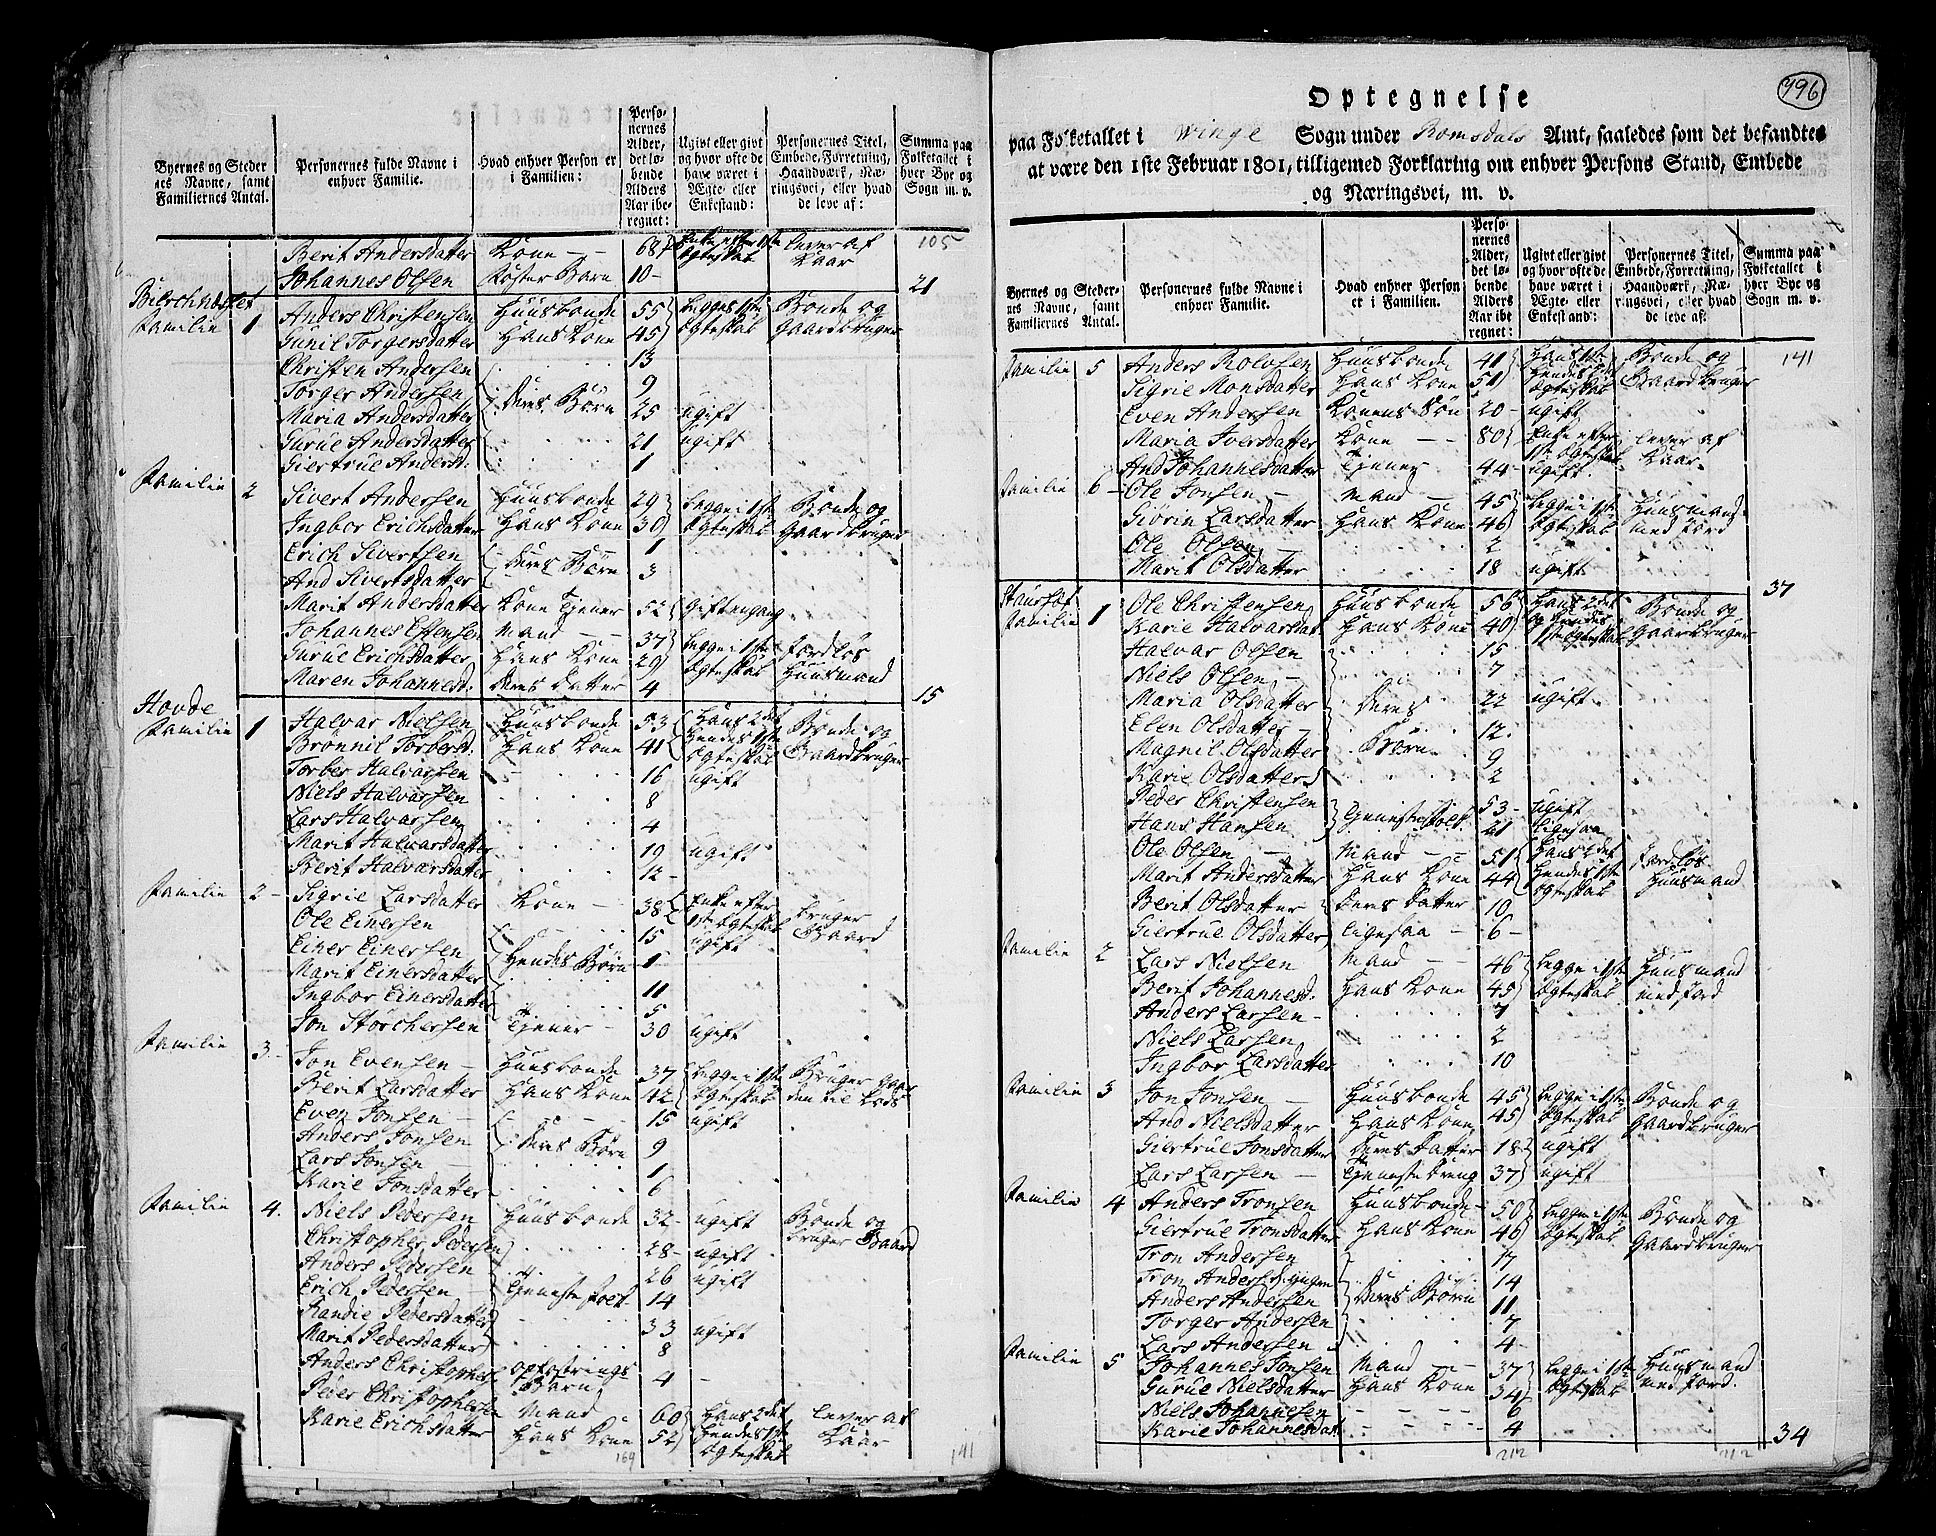 Byernes og Steder nes Navne, samt Familiernes Antal.
Personernes fulde Navne i enhver Familie.
Hvad enhver Person er i Familien:
Perso- nernes Alder, det lø- bende Alders Aar ibe- regnet:
Ugivt eller givt og hvor ofte de have været i Ægte- eller Enkestand:
Personernes Titel, Embede, Forretning, Haandværk, Næ- ringsvei, eller hvad de leve af:
Summa paa Folketallet i hver Bye og Sogn m. v.
Berit Andersdatter Kone 68 Enke efter 1ste Ægteskab lever af Kaar 105
Johannes Olsen Foster Barn 10 21
Familie 1 Anders Christensen Huusbonde 55 begge i 1ste Bonde og
Gunil Torgersdatter Hans Kone 45 Ægteskab Gaardbruger
Christen Andersen 13
Torger Andersen 9
Maria Andersdatter Deres Børn 25 ugift
Guruе Andersdatter 21 ugift
Giertrue Andersd: 1
Familie 2 Sivert Andersen Huusbonde 29 begge i 1ste Bonde og
Ingbor Erichsdatter Hans Kone 30 Ægteskab Gaardbruger
Erich Sivertsen Deres Børn 1
And Sivertsdatter 3
Marit Andersdatter Kone Tjener 52 Gift engang
Johannes Estensen Mand 37 begge i 1ste Jordløs
Gurue Erichsdatter Hans Kone 29 Ægteskab Huusmand
Maren Johannesd: Deres Datter 4 15
Hovde
Familie 1 Halvar Nielsen Huusbonde 53 Hans 2det Bonde og
Brønnil Torbersd. Hans Kone 41 Hendes 1ste Ægteskab Gaardbruger
Torber Halvarsen 16 ugift
Niels Halvarsen 8
Lars Halvarsen 4
Marit Halvarsdatter 19 ugift
Berit Halvarsdatter 12
Familie 2 Sigrie Larsdatter Kone 38 Enke efter 1ste Ægteskab bruger Gaard
Ole Einersen 15 ugift
Einer Einersen Hendes Børn 1
Marit Einersdatter 11
Ingbor Einersdatter 5
Jon Størchersen Tjener 30 ugift
Familie 3 Jon Evensen Huusbonde 37 begge i 1ste Bruger Gaar
Berit Larsdatter Hans Kone 42 Ægteskab den til Lods
Even Jonsen 15 ugift
Anders Jonsen Deres Børn 9
Lars Jonsen 1
Karie Jonsdatter 6
Familie 4. Niels Pedersen Huusbonde 32 ugift Bonde og bruger Gaard
Christopher Pedersen 28 ugift
Anders Pedersen 26 ugift
Erich Pedersen Tjeneste Folk 14
Randie Pedersdatter 33 ugift
Marit Pedersdatter 8
Anders Christophers. opfostrings Barn 4
Peder Christophersen Mand 60 Hans 2det lever af
Karie Erichsdatter Hans Kone 52 Hendes 1ste Ægteskab Kaar
169 141
796
Optegnelse
paa Folketallet i Winge Sogn under Romsdals Amt, saaledes som det befandtes
at være den 1ste Februar 1801, tilligemed Forklaring om enhver Persons Stand, Embede
og Næringsvei, m. v.
Byernes og Steder- nes Navne, samt Familiernes Antal.
Personernes fulde Navne i enhver Familie.
Hvad enhver Person er i Familien.
Perso- nernes Alder, det lø- bende Alders Aar ibe- regnet:
Ugivt eller givt og hvor ofte de have været i Ægte- eller Enkestand:
Personernes Titel, Embede, Forretning, Haandværk, Næ- ringsvei, eller hvad de leve af.
Summa paa Folketallet i hver Bye og Sogn m. v.
Familie 5 Anders Rolvsen Huusbonde 41 Hans 1ste Bonde og 141
Sigrie Monsdatter Hans Kone 51 Hendes Ægteskab Gaardbruger
Even Andersen Konens Søn 20 ugift
Maria Iversdatter Kone 80 Enke efter 1ste Ægteskab lever af Kaar
And Johannesdatter Tjener 44 ugift
Familie 6 Ole Jonsen Mand 45 begge i 1ste Huusmand
Giørin Larsdatter Hans Kone 46 Ægteskab med Jord
Ole Olsen 2
Marit Olsdatter 18 ugift 37
Familie 1 Ole Christensen Huusbonde 56 Hans 2det Bonde og
Karie Halvarsdat. Hans Kone 40 og Hendes 1ste Ægteskab Gaardbruger
Halvar Olsen 15
Niels Olsen 7
Maria Olsdatter Deres 22 ugift
Elen Olsdatter 12
Magnil Olsdatter Børn 9
Karie Olsdatter 2
Peder Christensen Tjenestefolk 53 ugift
Hans Hansen 21 ligesaa
Ole Olsen Mand 51 Hans 2det Jordløs
Marit Andersdatter Hans Kone 44 Hendes 1ste Ægteskab Huusmand
Berit Olsdatter Deres Datter 10
Giertrue Olsdatter ligesaa 6
Familie 2 Lars Nielsen Mand 46 begge i 1ste Huusmand
Berit Johannesd. Hans Kone 45 Ægteskab med Jord
Anders Larsen 7
Niels Larsen 2
Ingbor Larsdatter 10
Familie 3 Jon Jonsen Huusbonde 45 begge i 1ste Bonde og
And Nielsdatter Hans Kone 45 Ægteskab Gaardbruger
Giertrue Jonsdatter Deres Datter 18 ugift
Lars Larsen Tjeneste Dreng 37 ugift
Familie 4 Anders Tronsen Huusbonde 50 begge i 1ste Bonde og
Giertrue Tronsdatter Hans Kone 46 Ægteskab Gaardbruger
Tron Andersen 17
Tron Anders. yngere 14
Anders Andersen Deres Børn 11
Torger Andersen 7
Lars Andersen 4
Familie 5 Johannes Jonsen Mand 37 begge i 1ste Huusmand
Gurue Nielsdatter Hans Kone 34 Ægteskab med Jord.
Niels Johannesen 6
Karie Johannesdat. 4
34
212 212